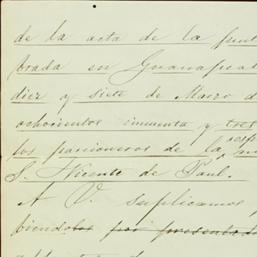 de la acta de la junt
brada en Guanajuat
diez y siete de Marzo d
ochocientos cincuenta y tres
los pasioneros de la
S. Vicente de Paul.
A V. suplicamos
biendolos por presentado